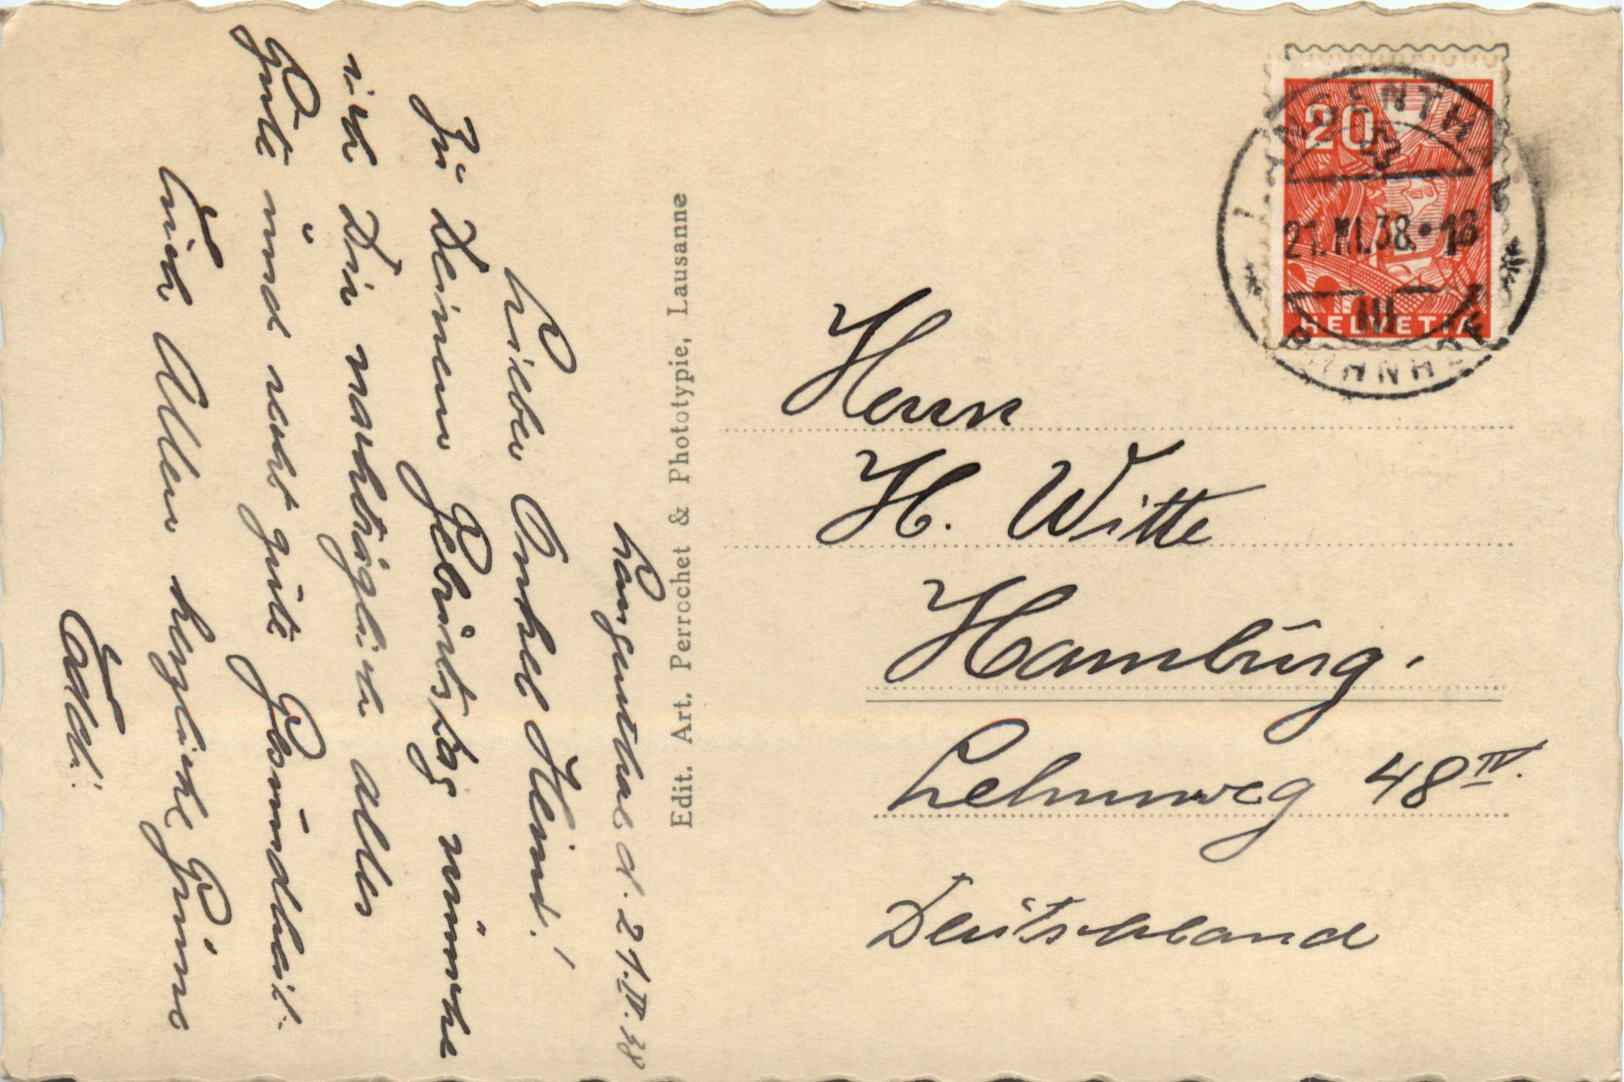 Langenthal d. 21.IV.38
Lieber Onkel Heini!
Zu Deinem Geburtstag wünsche
ich Dir nachträglich alles
Gute und recht gute Gesundheit.
Und Allen herzliche Grüsse
Eddi.
Edit. Art. Perrochet & Phototypie, Lausanne
20
HELVETIA
LANGENTHAL
21. 38. 18
III
BAHNHOF
Herrn
H. Witte
Hamburg.
Lehmweg 48 IV.
Deutschland